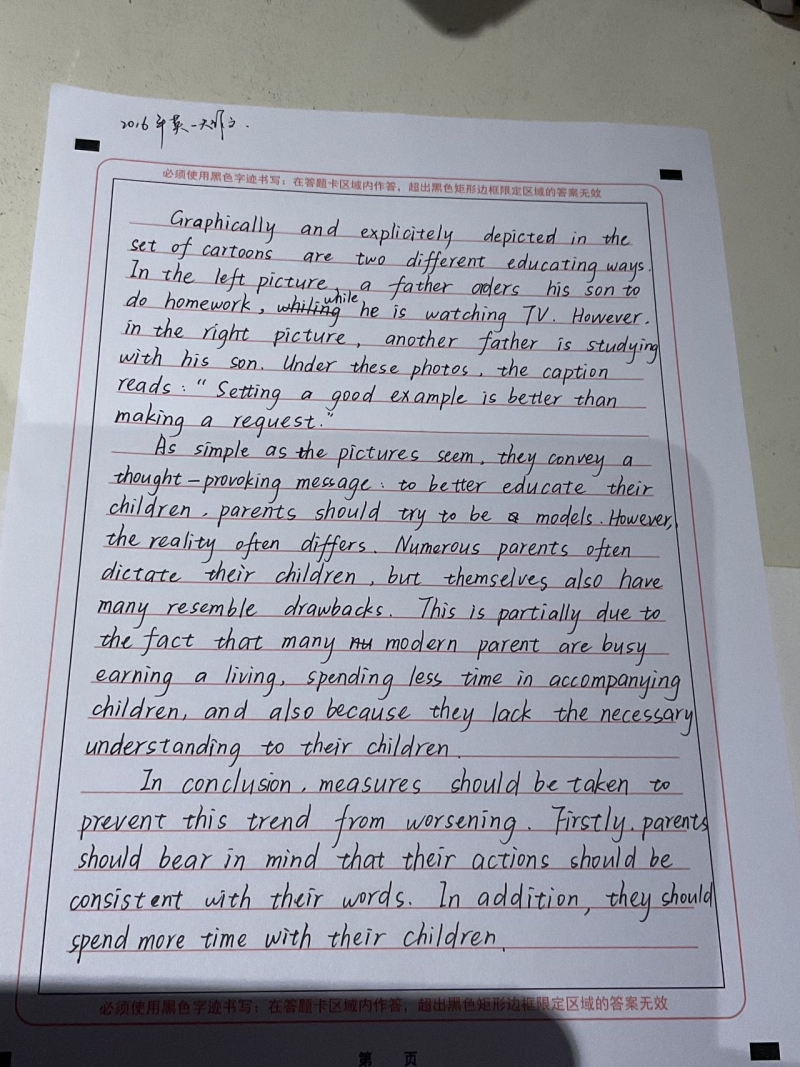 2016年英一大作文.
必须使用黑色字迹书写；在答题卡区域内作答，超出黑色矩形边框限定区域的答案无效
Graphically and explicitely depicted in the
set of cartoons are two different educating ways.
In the left picture, a father orders his son to
do homework, whiling while he is watching TV. However,
in the right picture, another father is studying
with his son. Under these photos, the caption
reads: "Setting a good example is better than
making a request."
As simple as the pictures seem, they convey a
thought-provoking message: to better educate their
children, parents should try to be a models. However,
the reality often differs. Numerous parents often
dictate their children, but themselves also have
many resemble drawbacks. This is partially due to
the fact that many modern parent are busy
earning a living, spending less time in accompanying
children, and also because they lack the necessary
understanding to their children.
In conclusion, measures should be taken to
prevent this trend from worsening. Firstly, parents
should bear in mind that their actions should be
consistent with their words. In addition, they should
spend more time with their children.
必须使用黑色字迹书写；在答题卡区域内作答，超出黑色矩形边框限定区域的答案无效
第 页